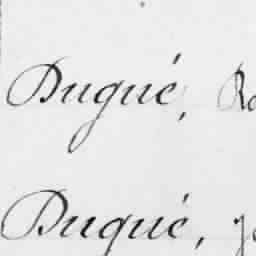 Dugué, Ro
Dugué, Je